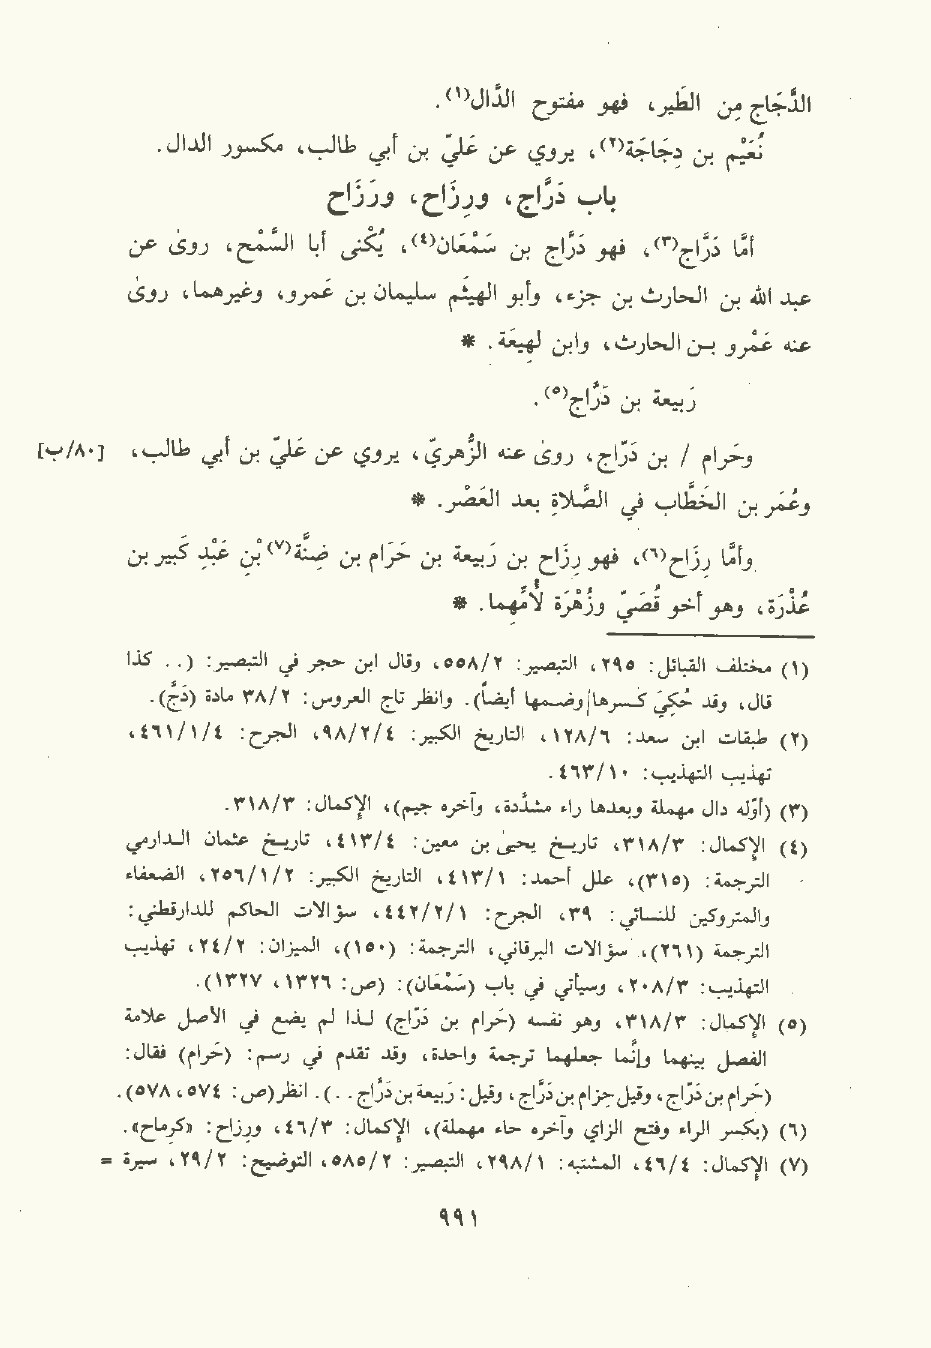 الدَّجَاج مِن الطَير، فهو مفتوح الدَّال(١).
نُعَيْم بن دِجَاجَة(٢)، يروي عن عَليّ بن أبي طالب، مكسور الدال.
باب دَرَّاج، ورِزَاح، ورَزَاح
أمَّا دَرَّاج(٣)، فهو دَرَّاج بن سَمْعَان(٤)، يُكْنى أبا السَّمْح، روىٰ عن
عبد الله بن الحارث بن جزء، وأبو الهيثم سليمان بن عَمرو، وغيرهما، روىٰ
عنه عَمْرو بن الحارث، وابن لهِيعَة. *
رَبيعة بن دَرَّاج(٥).
وحَرام / بن دَرّاج، روىٰ عنه الزُّهريّ، يروي عن عَليّ بن أبي طالب، [٨٠/ب]
وعُمَر بن الخَطَّاب في الصَّلاةِ بعد العَصْر. *
وأمَّا رِزَاح(٦)، فهو رِزَاح بن رَبيعة بن حَرَام بن ضِنَّة(٧) بْنِ عَبْدِ كَبير بن
عُذْرَة، وهو أخو قُصَيّ وزُهْرَة لأُمِّهما. *
(١) مختلف القبائل: ٢٩٥، التبصير: ٥٥٨/٢، وقال ابن حجر في التبصير: (.. كذا
قال، وقد حُكيَ كسرها/وضمها أيضاً). وانظر تاج العروس: ٣٨/٢ مادة (دَجَّ).
(٢) طبقات ابن سعد: ١٢٨/٦، التاريخ الكبير: ٩٨/٢/٤، الجرح: ٤٦١/١/٤،
تهذيب التهذيب: ٤٦٣/١٠.
(٣) (أوّله دال مهملة وبعدها راء مشدّدة، وآخره جيم)، الإكمال: ٣١٨/٣.
(٤) الإكمال: ٣١٨/٣، تاريخ يحيىٰ بن معين: ٤١٣/٤، تاريخ عثمان الدارمي
الترجمة: (٣١٥)، علل أحمد: ٤١٣/١، التاريخ الكبير: ٢٥٦/١/٢، الضعفاء
والمتروكين للنسائي: ٣٩، الجرح: ٤٤٢/٢/١، سؤالات الحاكم للدارقطني:
الترجمة (٢٦١)، سؤالات البرقاني، الترجمة: (١٥٠)، الميزان: ٢٤/٢، تهذيب
التهذيب: ٢٠٨/٣، وسيأتي في باب (سَمْعَان): (ص: ١٣٢٦، ١٣٢٧).
(٥) الإكمال: ٣١٨/٣، وهو نفسه (حَرام بن دَرَّاج) لذا لم يضع في الأصل علامة
الفصل بينهما وإنَّما جعلهما ترجمة واحدة، وقد تقدم في رسم: (حَرام) فقال:
(حَرام بن دَرَّاج، وقيل حِزام بن دَرَّاج، وقيل: رَبيعة بن دَرَّاج..). انظر (ص: ٥٧٤، ٥٧٨).
(٦) (بكسر الراء وفتح الزاي وآخره حاء مهملة)، الإكمال: ٤٦/٣، ورزاح: «كرماح».
(٧) الإكمال: ٤٦/٤، المشتبه: ٢٩٨/١، التبصير: ٥٨٥/٢، التوضيح: ٢٩/٢، سيرة =
٩٩١